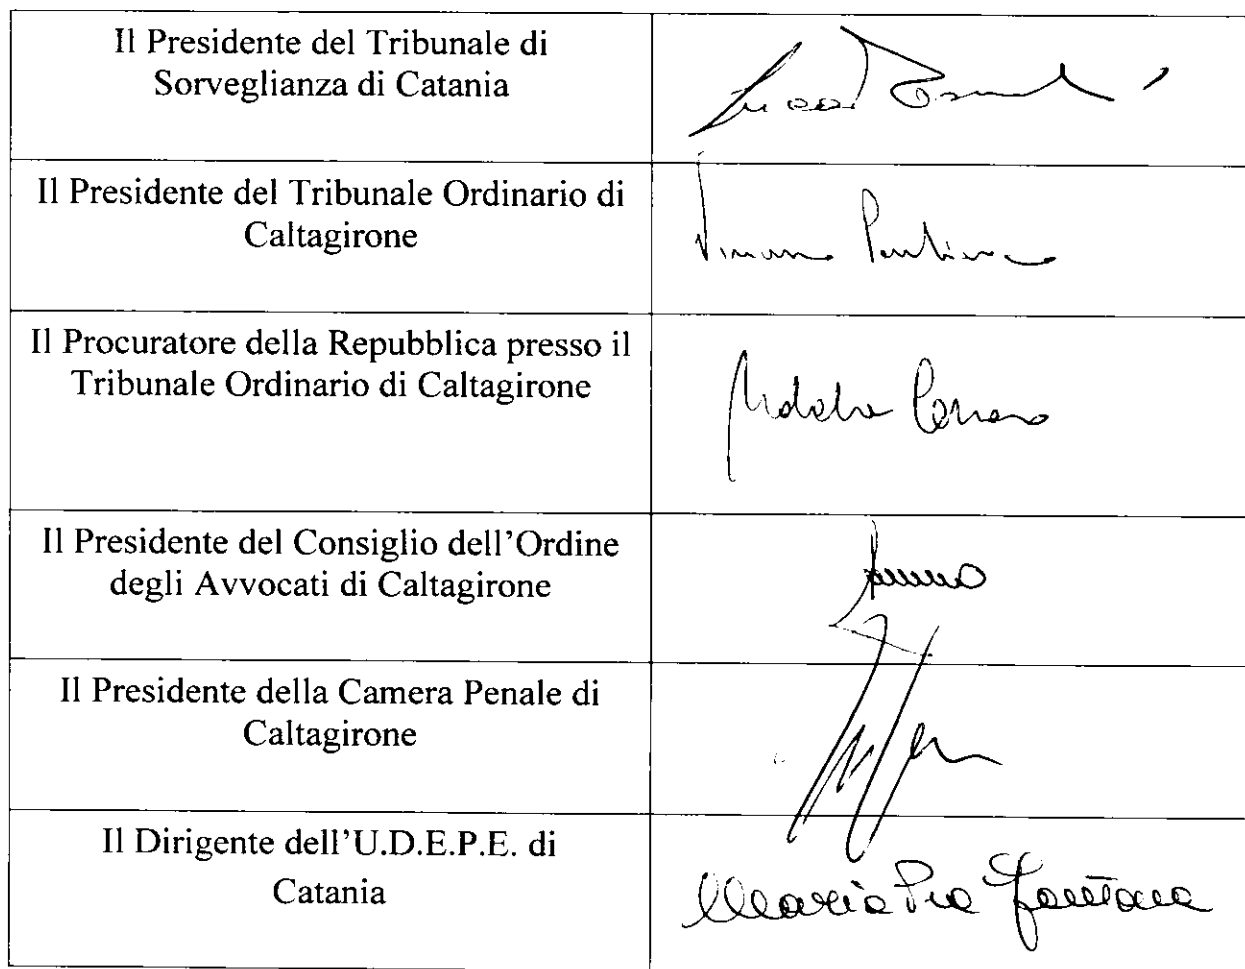 Il Presidente del Tribunale di
Sorveglianza di Catania
Il Presidente del Tribunale Ordinario di
Caltagirone
Il Procuratore della Repubblica presso il
Tribunale Ordinario di Caltagirone
Il Presidente del Consiglio dell'Ordine
degli Avvocati di Caltagirone
Il Presidente della Camera Penale di
Caltagirone
Il Dirigente dell'U.D.E.P.E. di
Catania
Maria Pia Fontana